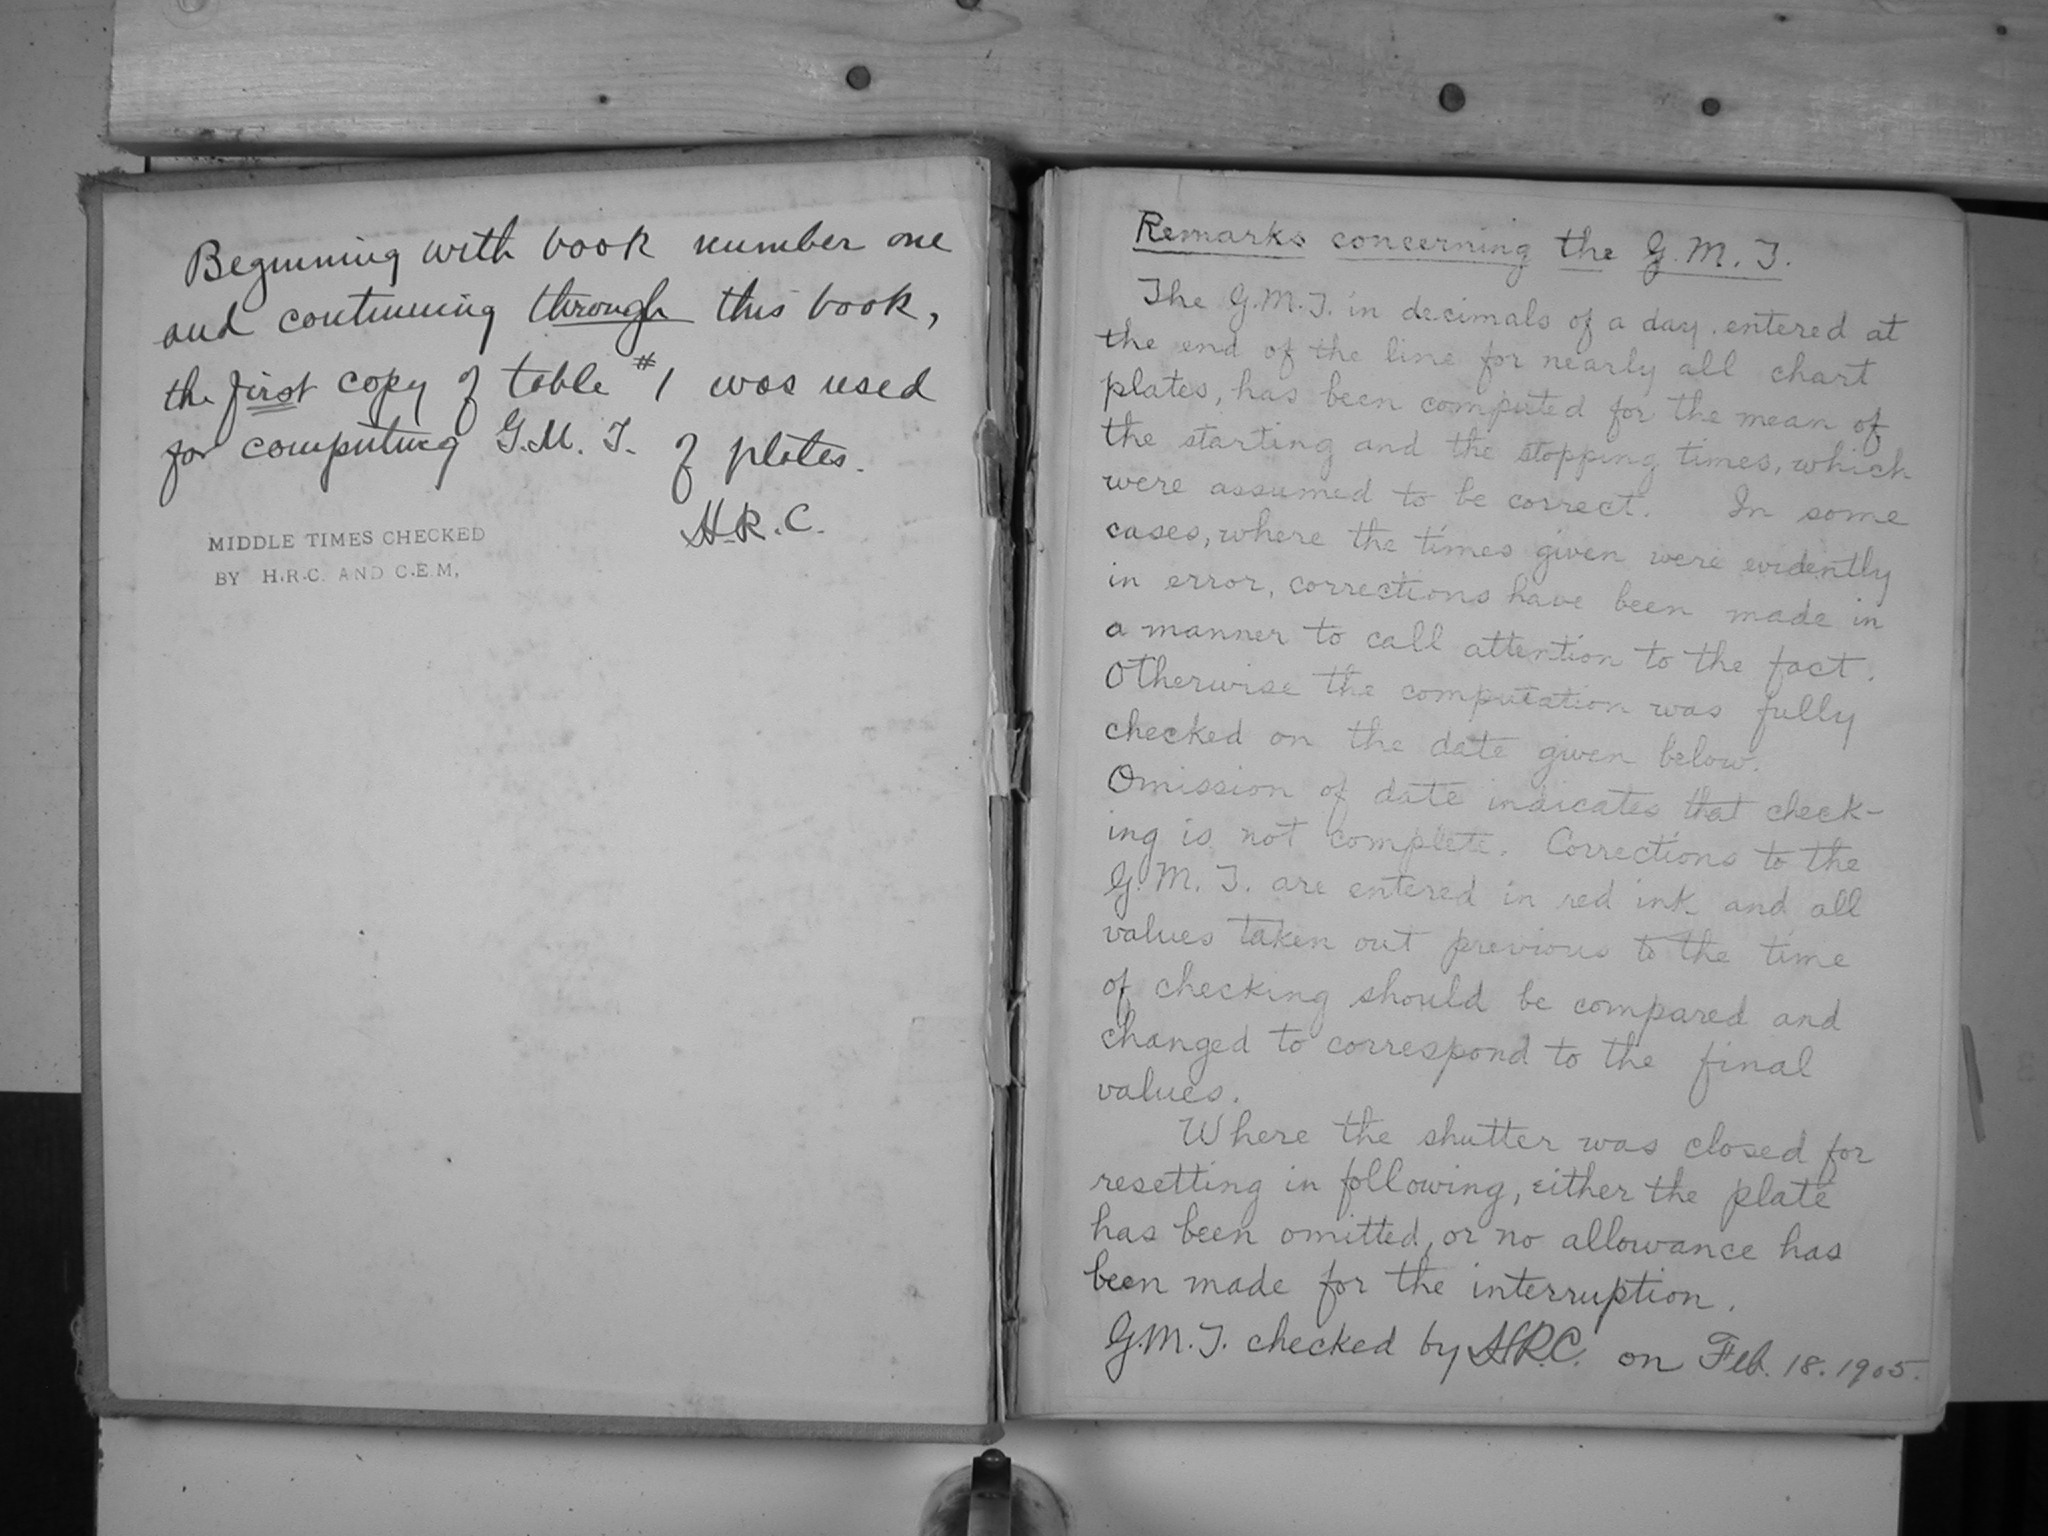 Beginning with book number one
and continuing through this book,
the first copy of table #1 was used
for computing G.M.T. of plates.
H.R.C.
MIDDLE TIMES CHECKED
BY H.R.C. AND C.E.M.
Remarks concerning the G.M.T.
The G.M.T. in decimals of a day entered at
the end of the line for nearly all chart
plates, has been computed for the mean of
the starting and the stopping times, which
were assumed to be correct. In some
cases, where the times given were evidently
in error, corrections have been made in
a manner to call attention to the fact.
Otherwise the computation was fully
checked on the date given below.
Omission of date indicates that check-
ing is not complete. Corrections to the
G.M.T. are entered in red ink and all
values taken out previous to the time
of checking should be compared and
changed to correspond to the final
values.
Where the shutter was closed for
resetting in following, either the plate
has been omitted, or no allowance has
been made for the interruption.
G.M.T. checked by H.R.C. on Feb. 18. 1905.